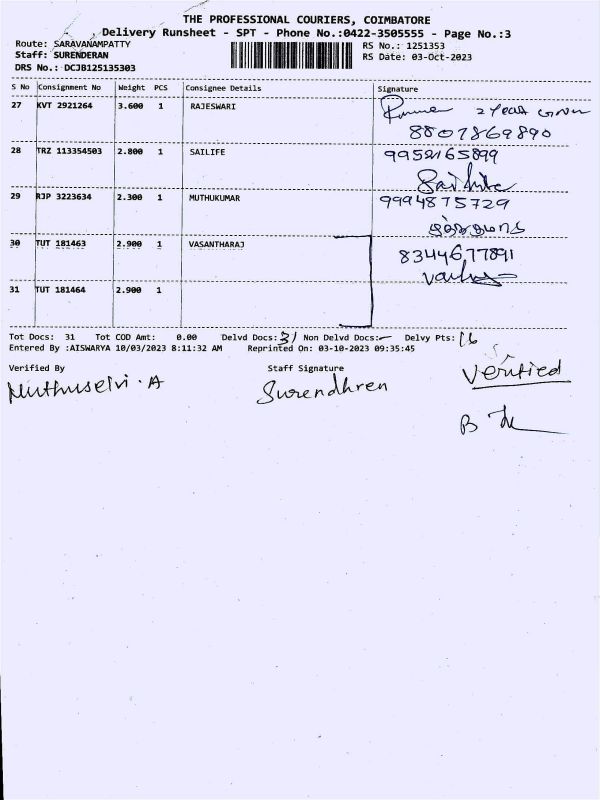 THE PROFESSIONAL COURIERS, COIMBATORE
Delivery Runsheet - SPT - Phone No.:0422-3505555 - Page No.:3
Route: SARAVANAMPATTY RS No.: 1251353
Staff: SURENDERAN RS Date: 03-Oct-2023
DRS No.: DCJB125135303
S No Consignment No Weight PCS Consignee Details Signature
27 KVT 2921264 3.600 1 RAJESWARI
8807869890
28 TRZ 113354503 2.800 1 SAILIFE 9952165899
29 RJP 3223634 2.300 1 MUTHUKUMAR 9994875729
30 TUT 181463 2.900 1 VASANTHARAJ 8344677891
31 TUT 181464 2.900 1
Tot Docs: 31 Tot COD Amt: 0.00 Delvd Docs: 31 Non Delvd Docs:— Delvy Pts: 16
Entered By :AISWARYA 10/03/2023 8:11:32 AM Reprinted On: 03-10-2023 09:35:45
Verified By Staff Signature Verified
Muthuselvi . A Surendhren